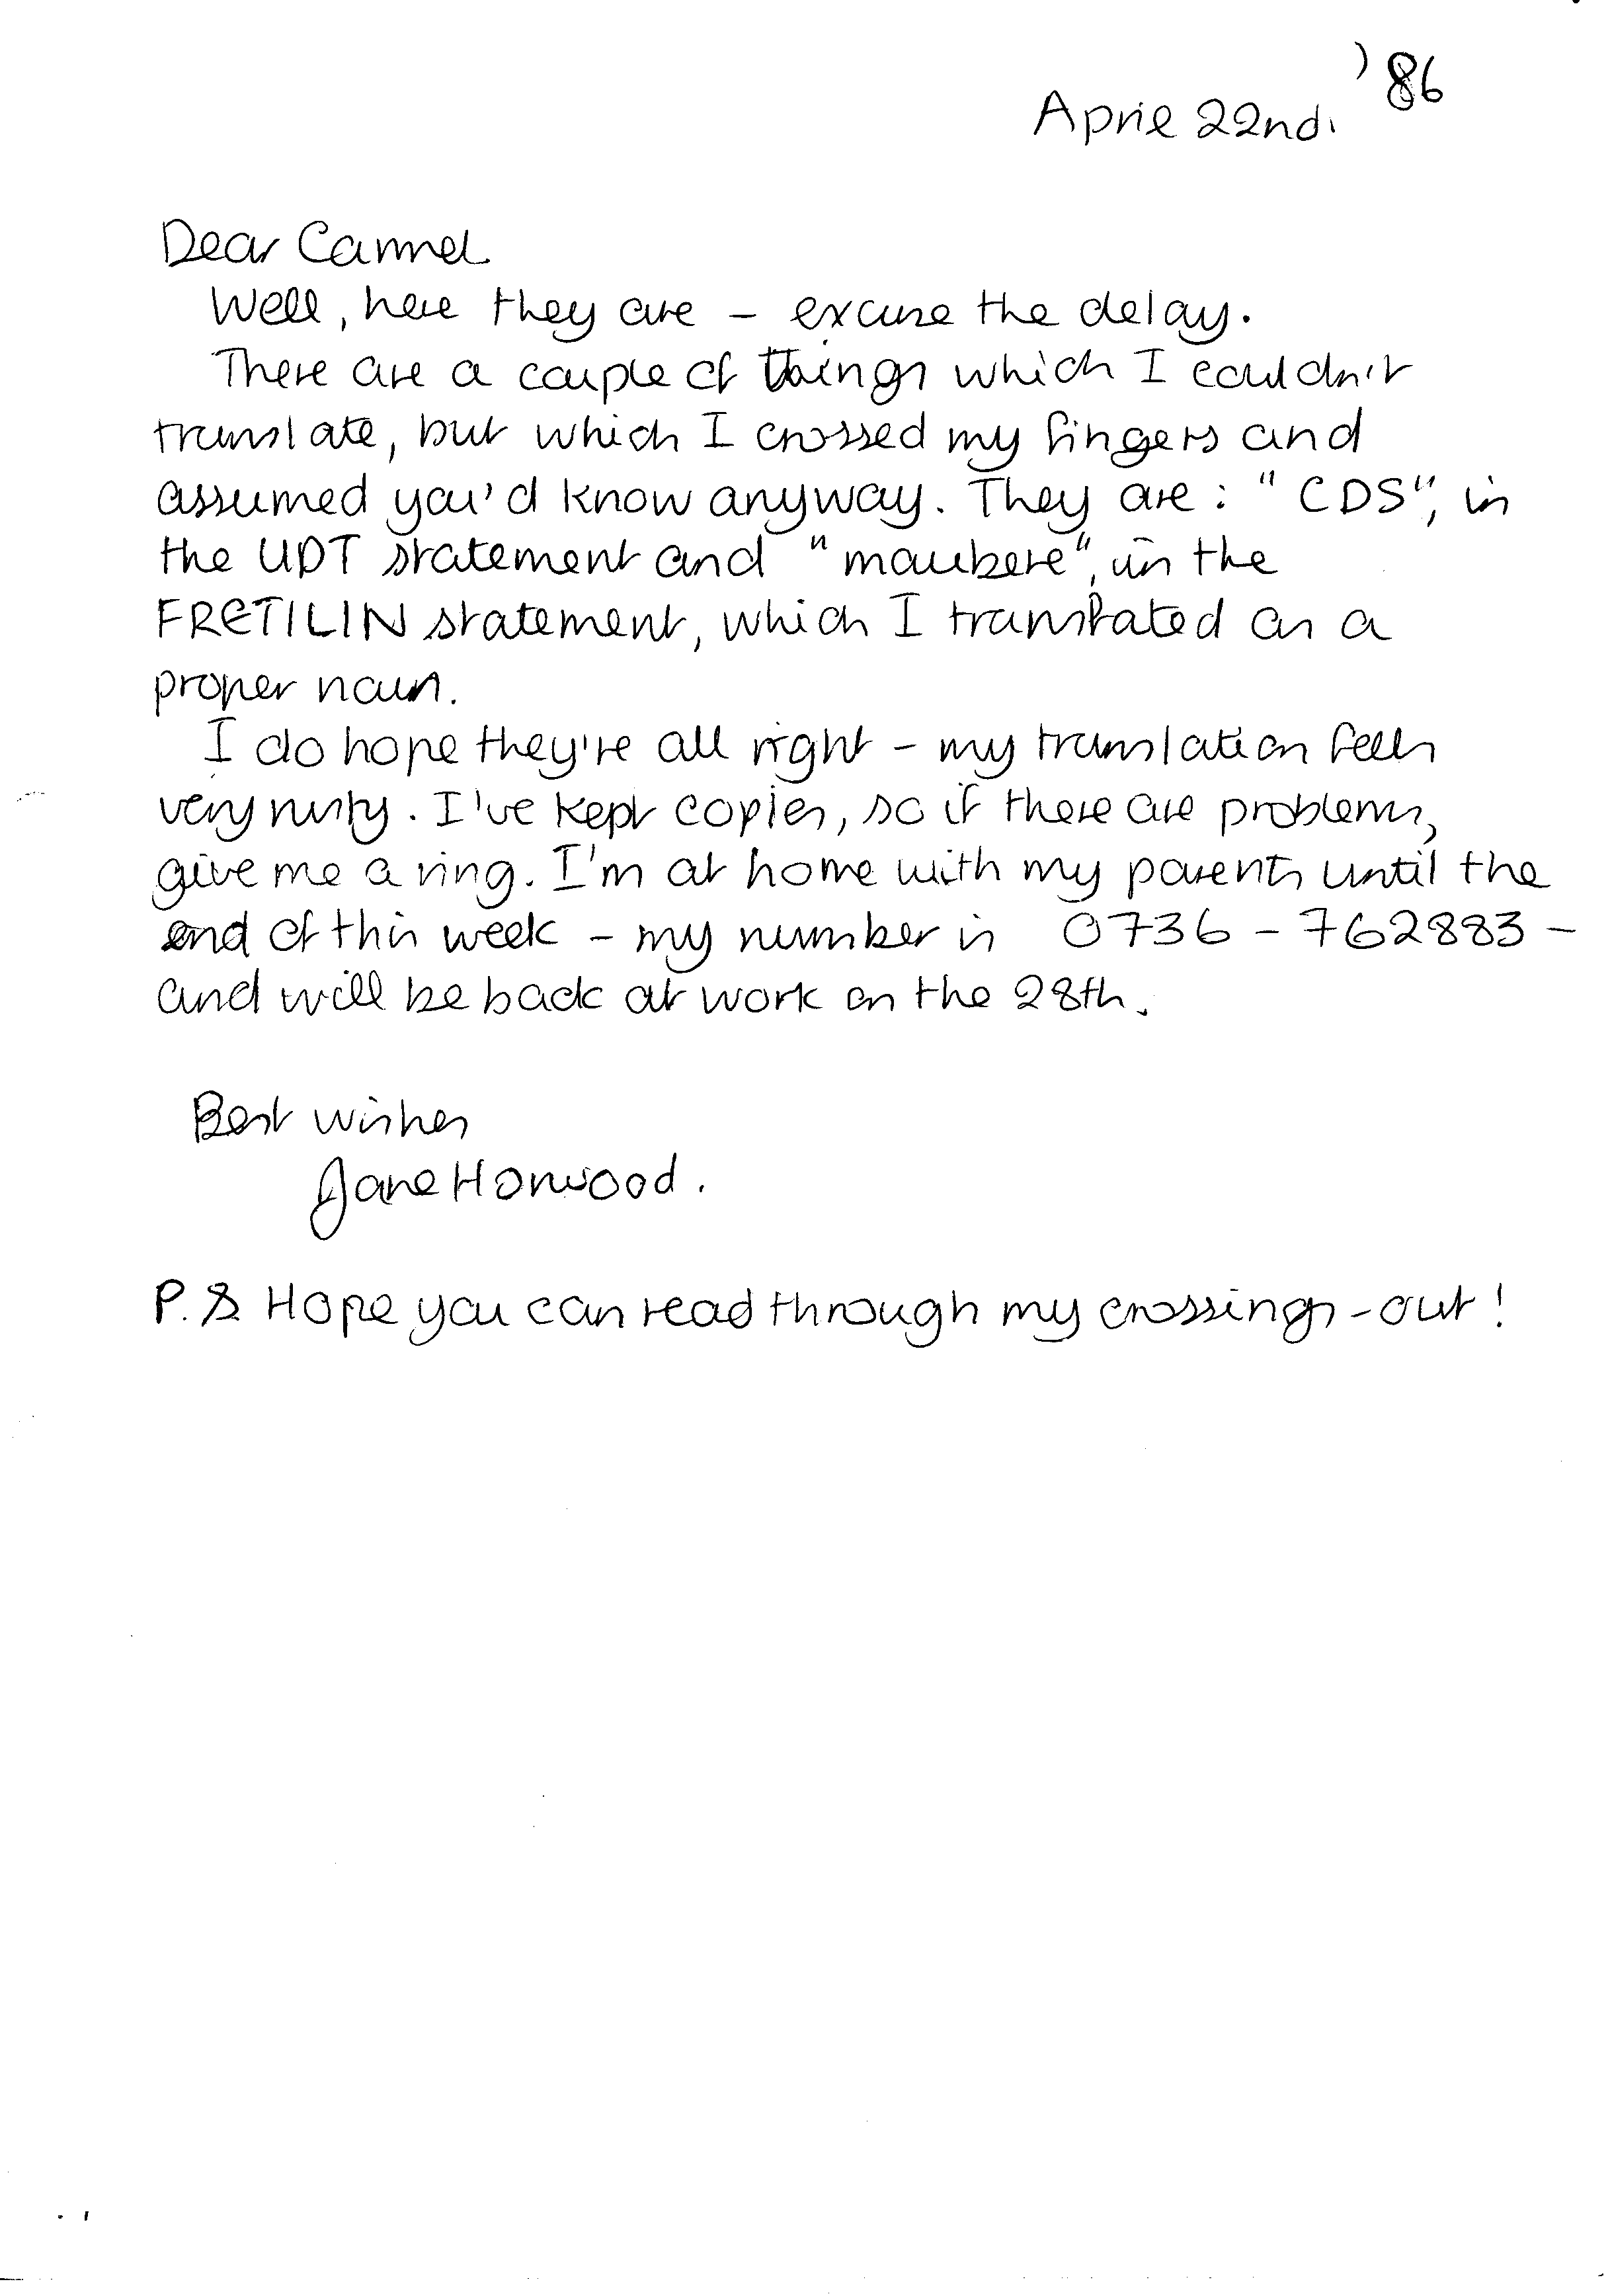 April 22nd. '86
Dear Carmel
Well, here they are – excuse the delay.
There are a couple of things which I couldn't
translate, but which I crossed my fingers and
assumed you'd know anyway. They are: "CDS", in
the UDT statement and "maubere", in the
FRETILIN statement, which I translated as a
proper noun.
I do hope they're all right – my translation feels
very rusty. I've kept copies, so if there are problems,
give me a ring. I'm at home with my parents until the
end of this week – my number is 0736 – 762883 –
and will be back at work on the 28th.
Best wishes
Jane Horwood.
P.S Hope you can read through my crossings-out!